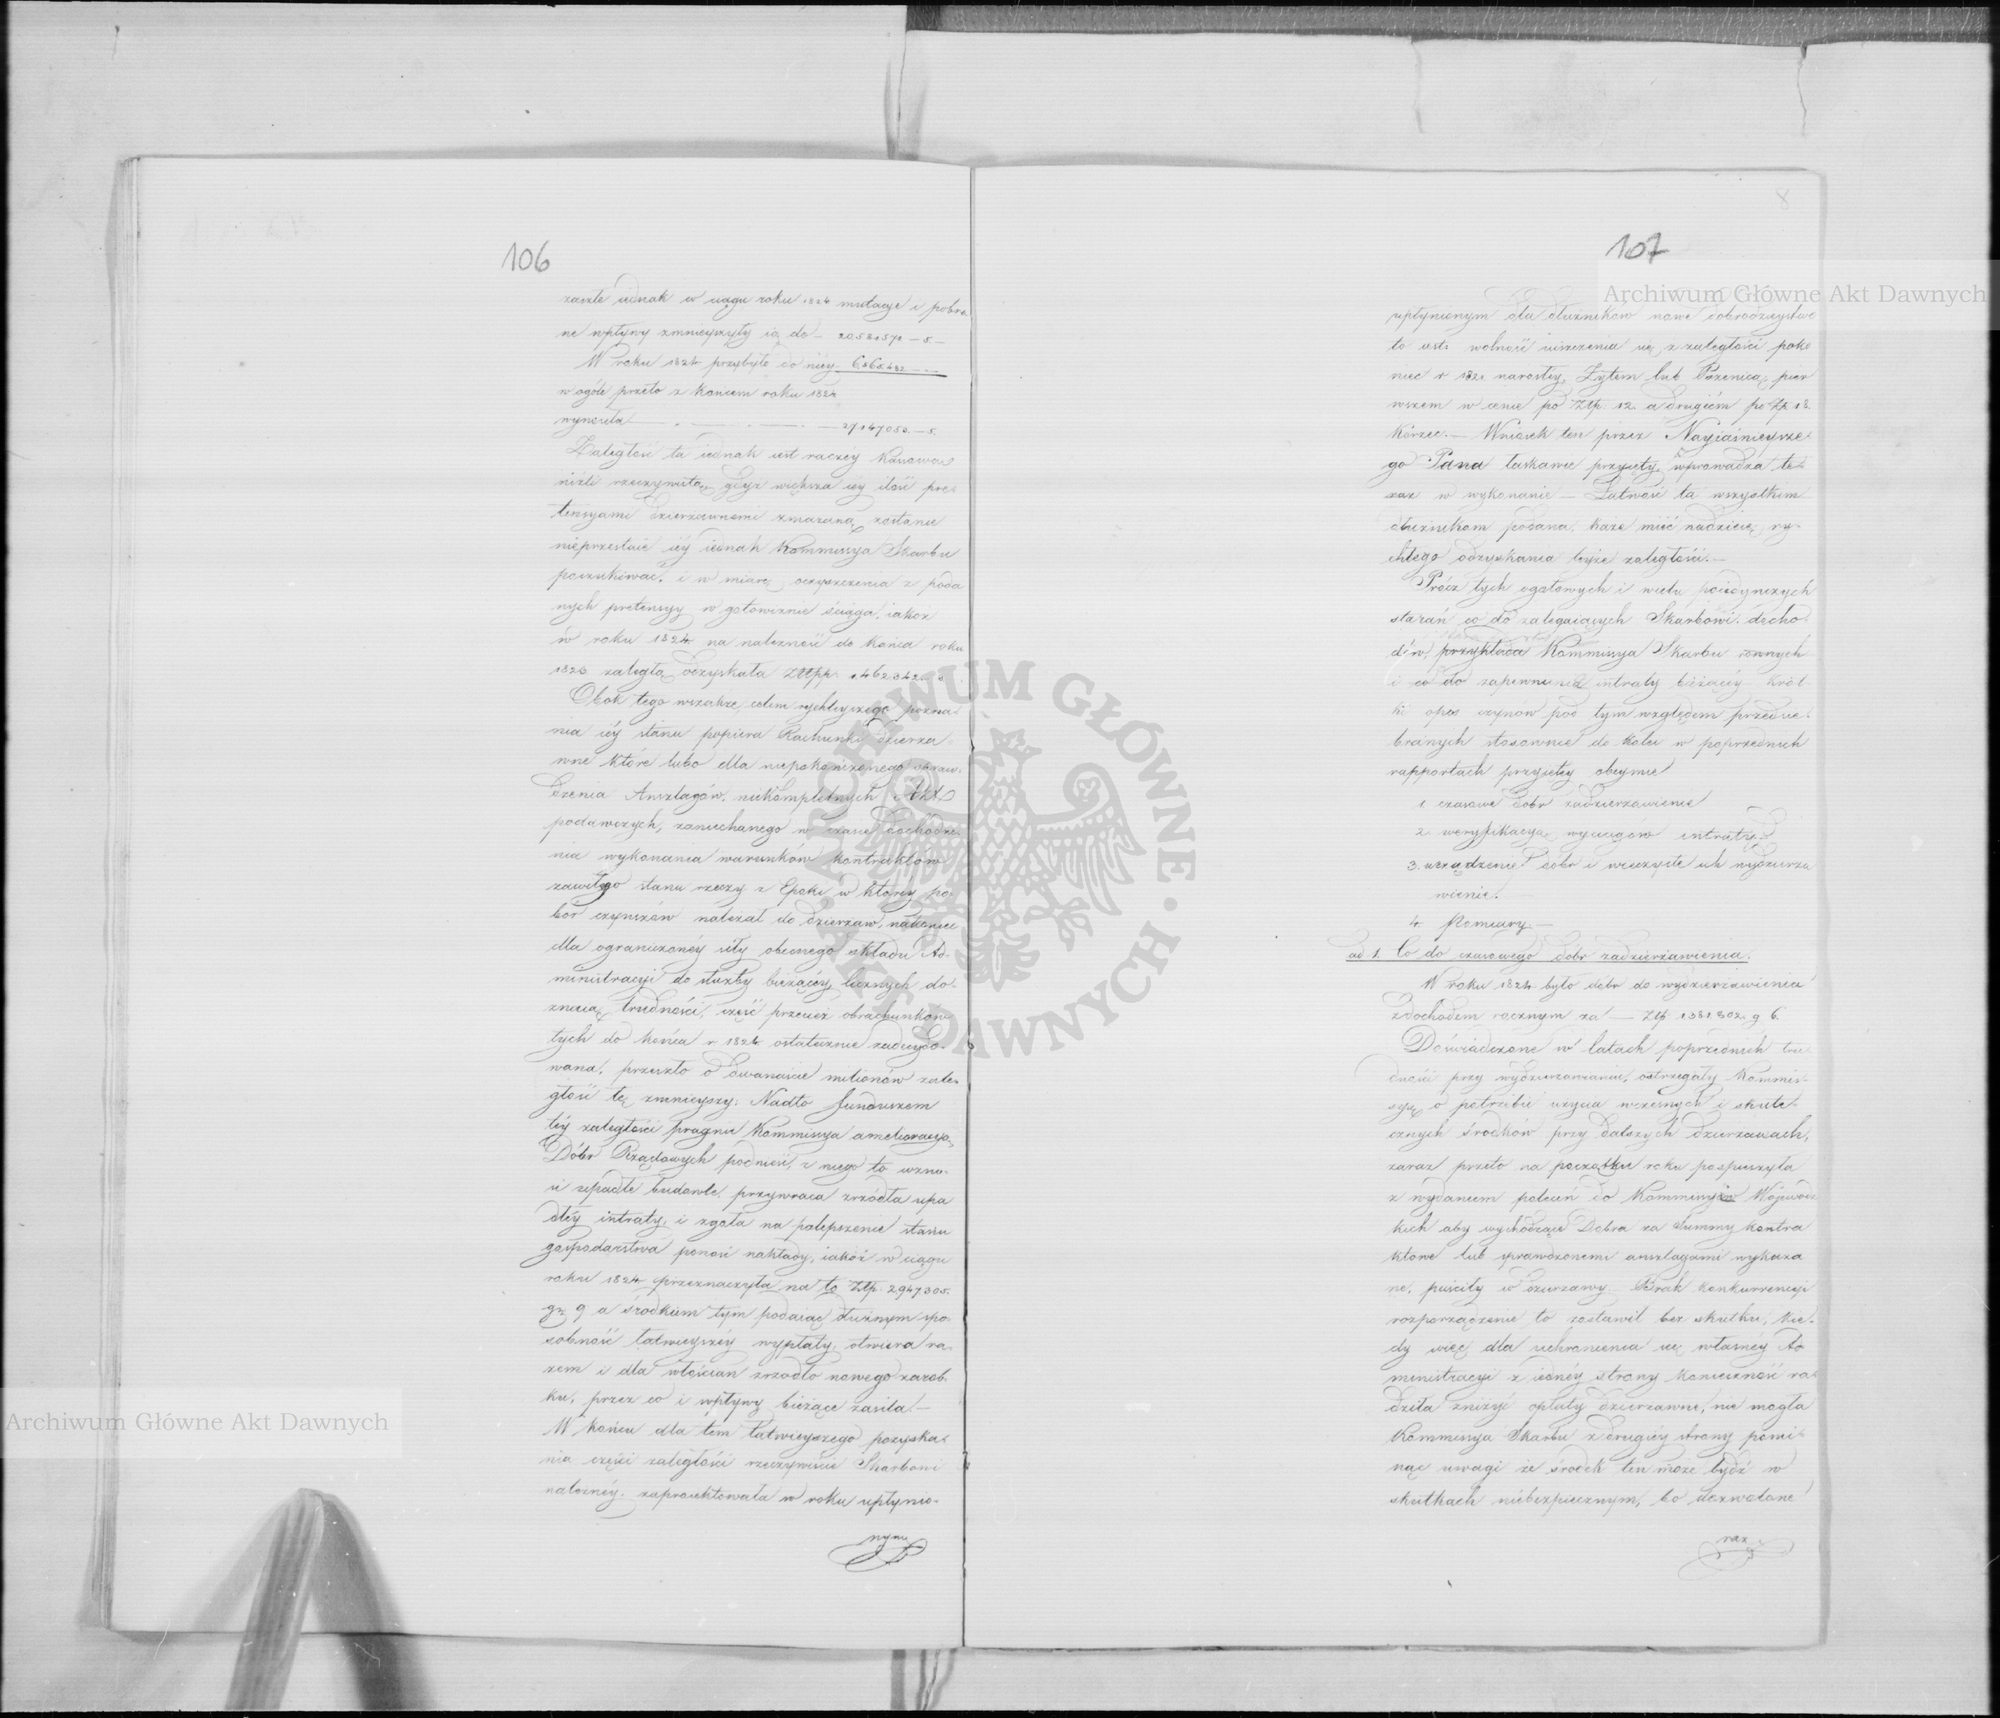 106
zaszłe jednak w ciągu roku 1824 mutacye i pobra
ne wpływy zmnieyszyły ią do — 20581571 — 5 —
W roku 1824 przybyło do niéy
w ogóle przeto z końcem roku 1824
wynosiła — 27147053 — 5.
Zaległość ta iednak iest raczey
niżli rzeczywistą, gdyż większa iey ilość pre-
tensyami dzierzawnemi zmazaną zostanie
nieprzestaie iéy iednak Kommissya Skarbu
poszukiwać, i w miarę oczyszczenia z poda
nych pretensyy w gotowiznie ściąga, iakoż
w roku 1824 na należność do końca roku
1823 zaległą odzyskała Złtpp. 1462342
Obok tego wszakże, celem rychleyszego pozna
nia iéy stanu popiera Rachunki dzierza-
wne które lubo dla niepokończonego spraw-
dzenia Anszlagów, niekompletnych Akt
podawczych, zaniechanego w czasie dochodze-
nia wykonania warunków kontraktów
zawiłego stanu rzeczy z Epoki w którey po-
bór czynszów należał do dzierzaw, nakoniec
dla ograniczonéy siły obecnego składu Ad-
ministracyi do służby bieżącéy, licznych do-
znaią trudności, część przecież obrachunków
tych do końca r 1824 ostatecznie zadecydo-
wana, przeszło o dwanaście milionów zale-
głość tę zmnieyszy. Nadto funduszem
téy zaległości pragnie Kommissya amelioracyą
Dóbr Rządowych podnieść, z niego to wzno-
si upadłe budowle, przywraca źrzódła upa
dłéy intraty, i zgoła na polepszenie stanu
gospodarstwa ponosi nakłady, iakoż w ciągu
roku 1824 przeznaczyła na to Złtp. 2947305.
gr. 9 a środkiem tym podaiąc dłużnym spo-
sobność łatwieyszéy wypłaty, otwiera ra-
zem i dla włościan źrzódło nowego zarob-
ku, przez co i wpływy bieżące zasila. —
W końcu dla tem łatwieyszego pozyska-
nia części zaległości rzeczywiście Skarbowi
należnéy, zaproiektowała w roku upłynio-
nym
8
107
upłynionym dla dłużników nowe dobrodzieystwo
to iest: wolność uiszczenia się z zaległości po ko
niec r 1821 narosłey, Żytem lub Pszenicą, pier
wszem w cenie po Złtp. 12. a drugiém po Zł. 18.
Korzec. — Wniosek ten przez Nayiaśnieysze-
go Pana łaskawie przyięty, wprowadza te-
raz w wykonanie — Łatwość ta wszystkim
dłużnikom podana, każe mieć nadzieię ry-
chłego odzyskania teyże zaległości. —
Prócz tych ogółowych i wielu poiedynczych
starań co do zalegaiących Skarbowi docho-
dów, przykłada Kommissya Skarbu równych
i co do zapewnienia intraty bieżącéy. Krót-
ki opis czynów pod tym względem przedsię-
branych stosownie do kolei w poprzednich
rapportach przyiętey obeymie
1. czasowe dóbr zadzierzawienie
2. weryfikacyą wyciągów intraty
3. urządzenie dóbr i wieczyste ich wydzierza
wienie.
4. Pomiary. —
ad 1. Co do czasowego dóbr zadzierżawienia.
W roku 1824 było dóbr do wydzierżawienia
z dochodem rocznym za — Złtp. 1381802. g 6.
Doświadczone w latach poprzednich tru-
dności przy wydzierzawianiu, ostrzegały Kommis-
syę o potrzebie użycia wczesnych i skute-
cznych środków przy dalszych dzierzawach,
zaraz przeto na początku roku pospieszyła
z wydaniem poleceń do Kommissyów Wojewódz
kich aby wychodzące Dobra za Summy kontra
ktowe lub sprawdzonemi anszlagami wykaza
ne, puściły w dzierzawy. Brak konkurrencyi
rozporządzenie to zostawił bez skutku, kie-
dy więc dla uchronienia się własnéy Ad
ministracyi z iednéy strony konieczność ra-
dziła zniżyć opłaty dzierzawne, nie mogła
Kommissya Skarbu z drugiéy strony pomi-
nąć uwagi że środek ten może bydź w
skutkach niebezpiecznym, bo dozwolone
raz
Archiwum Główne Akt Dawnych
Archiwum Główne Akt Dawnych
ARCHIWUM GŁÓWNE · AKT DAWNYCH ·